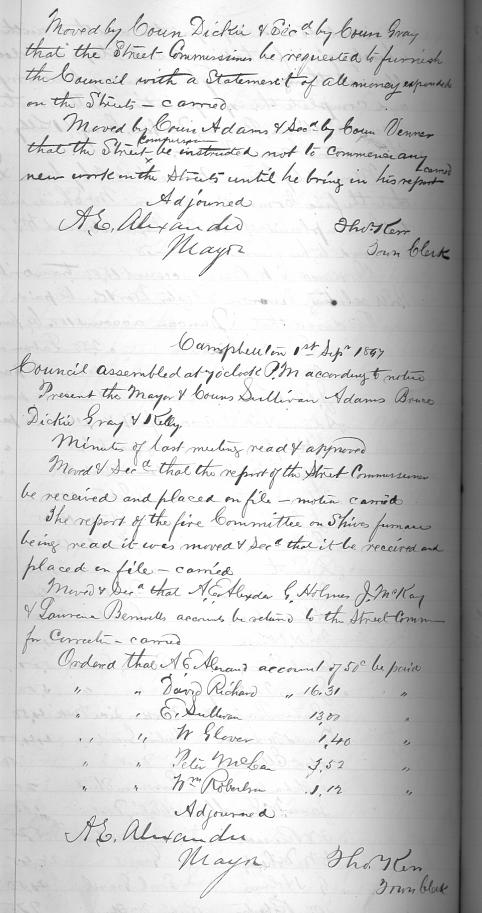 Moved by Coun Dickie & Secd by Coun Gray
that the Street Commissioner be requested to furnish
the Council with a Statement of all money expended
on the Streets – carried
Moved by Coun Adams & Secd by Coun Venner
that the Street be instructed not to commence any
new work on the Streets until he bring in his report carried
Adjourned
A.E. Alexander
Mayor
Thos Kerr
Town Clerk
Campbellton 1st Sepr 1897
Council assembled at 7 oclock P.M according to notice
Present the Mayor & Couns Sullivan Adams Bruce
Dickie Gray & Kelly
Minutes of last meeting read & approved
Moved & Secd that the report of the Street Commissioner
be received and placed on file – motion carried
The report of the fire Committee on Shives furnace
being read it was moved & Secd that it be received and
placed on file – carried
Moved & Secd that A.E. Alexder G. Holmes J. McKay
& Laurence accounts be returnd to the Street Comm
for – carried
Ordered that A E account of 50c be paid
" " David Richard " 16.31 "
" " E. Sullivan 13.00 "
" " W Glover 1.40 "
" " Peter 3.52 "
" " Wm Robertson 1.12 "
Adjourned
A.E. Alexander
Mayor
Thos Kerr
Town Clerk